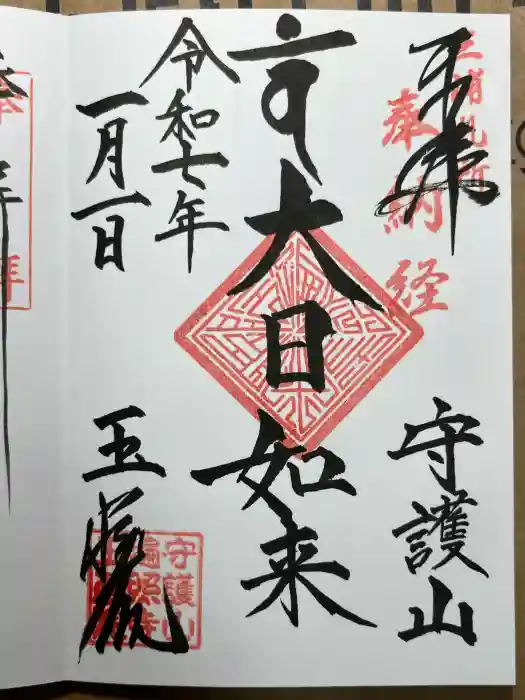 奉拝
奉納経
守護山
大日如来
令和七年
一月一日
玉
守護山
遍照寺